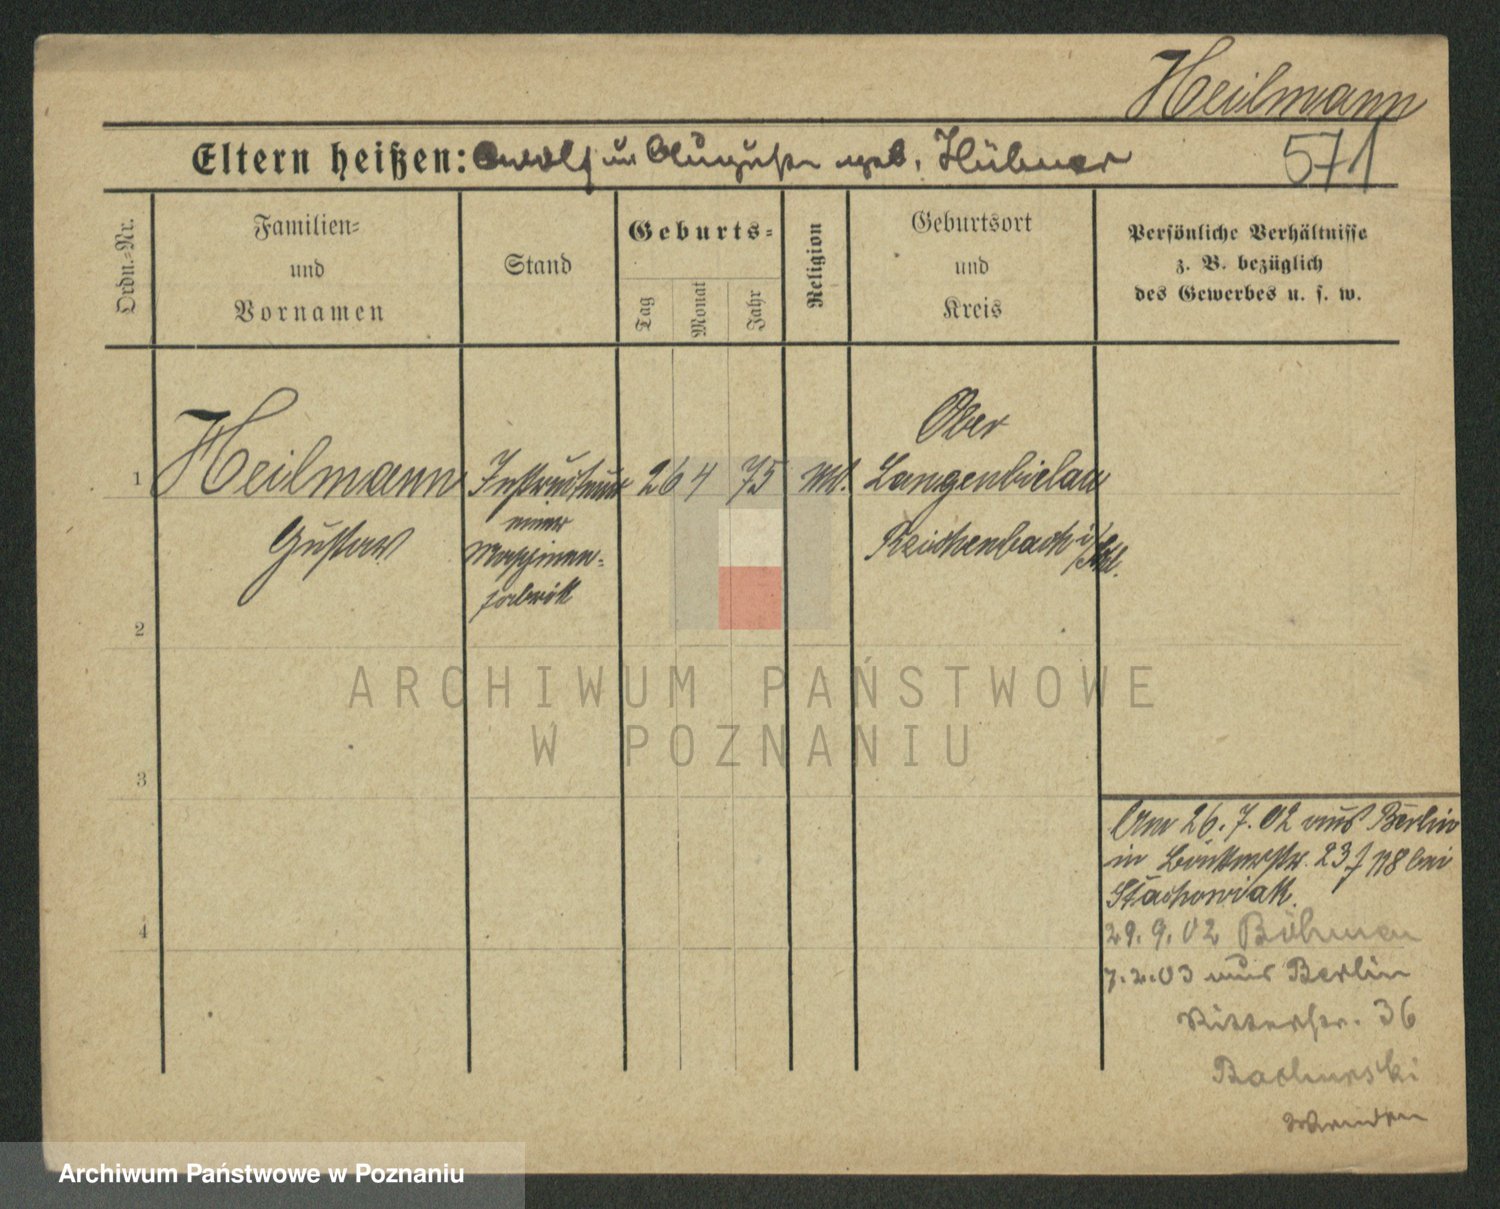 Heilmann
571
Eltern heißen: Adolf u Auguste geb. Hübner
Ordn.-Nr.
Familien-
und
Vornamen
Stand
Geburts-
Tag
Monat
Jahr
Religion
Geburtsort
und
Kreis
Persönliche Verhältnisse
z. B. bezüglich
des Gewerbes u. s. w.
1
Heilmann
Gustav
Instructeur
einer
Maschinen-
fabrik
26 4 75
Ober
Langenbielau
Reichenbach i/Schl.
2
3
4
Am 26.7.02 aus Berlin
in 23 bei
Stachowiak.
29.9.02 Böhmen
7.2.03 aus Berlin
Ritterstr. 36
ARCHIWUM PAŃSTWOWE
W POZNANIU
Archiwum Państwowe w Poznaniu